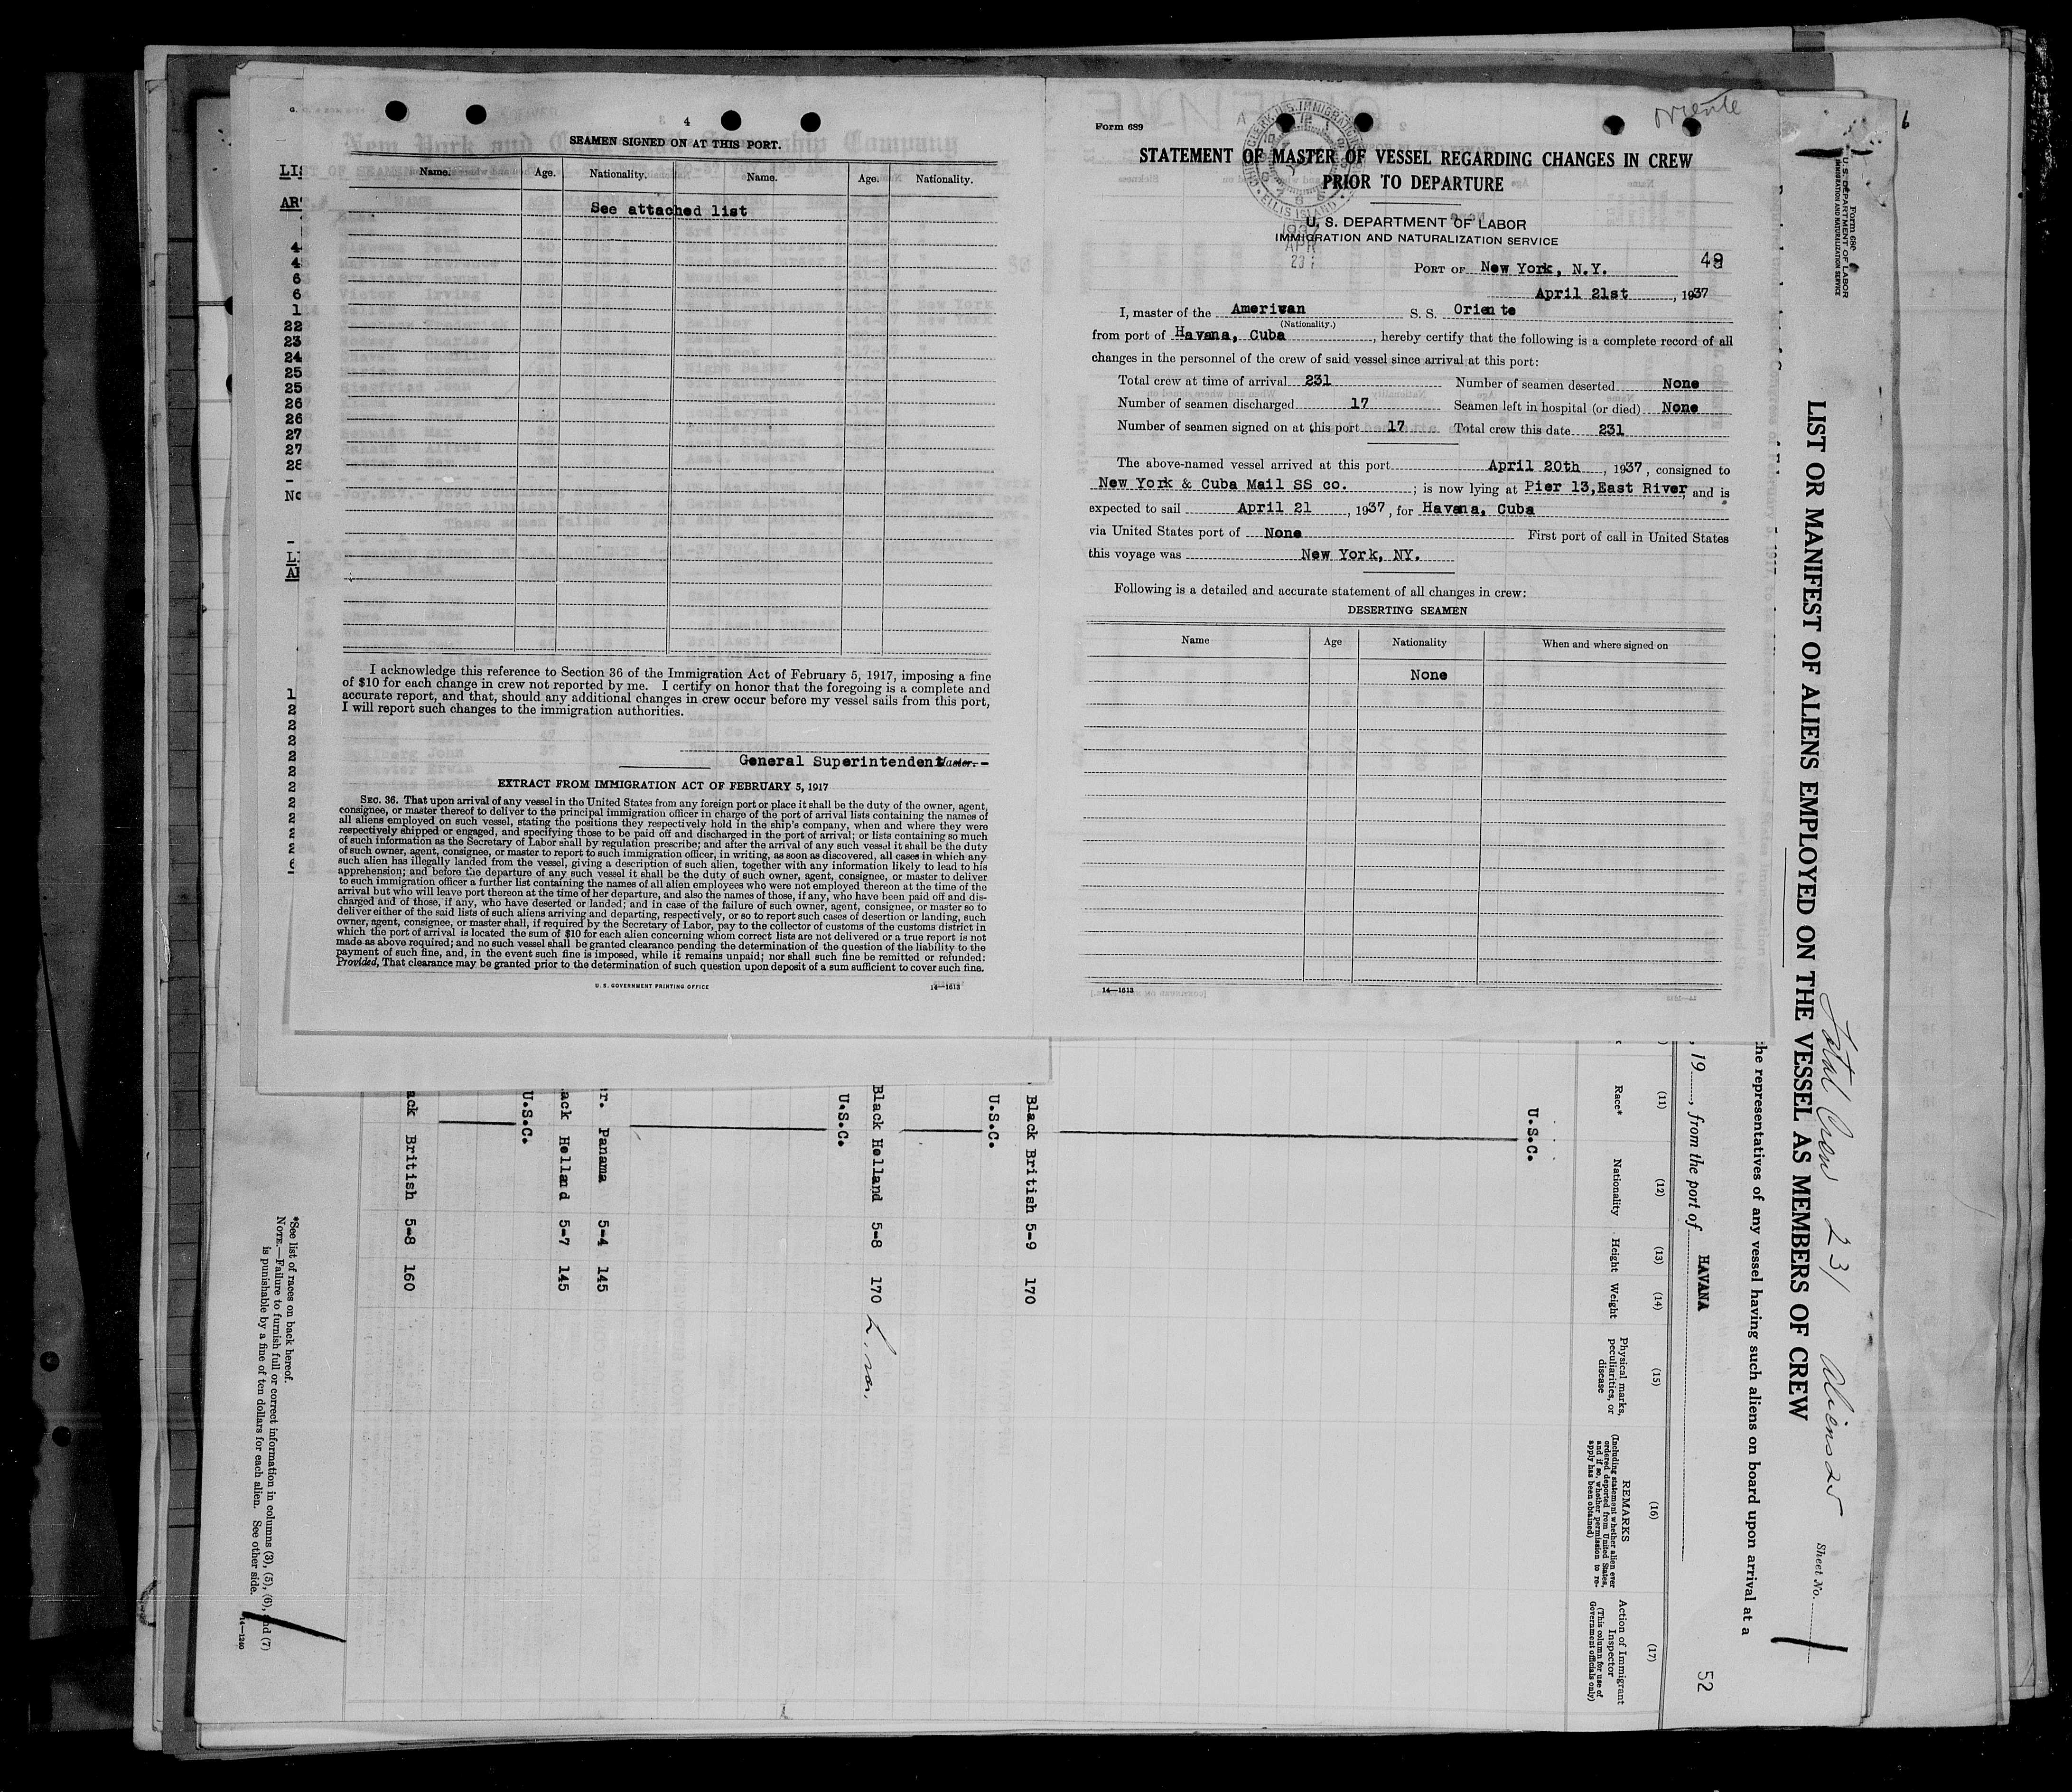 4
SEAMEN SIGNED ON AT THIS PORT.
Name. Age. Nationality. Name. Age. Nationality.
See attached list
I acknowledge this reference to Section 36 of the Immigration Act of February 5, 1917, imposing a fine
of $10 for each change in crew not reported by me. I certify on honor that the foregoing is a complete and
accurate report, and that, should any additional changes in crew occur before my vessel sails from this port,
I will report such changes to the immigration authorities.
General Superintendent Master.
EXTRACT FROM IMMIGRATION ACT OF FEBRUARY 5, 1917
SEC. 36. That upon arrival of any vessel in the United States from any foreign port or place it shall be the duty of the owner, agent,
consignee, or master thereof to deliver to the principal immigration officer in charge of the port of arrival lists containing the names of
all aliens employed on such vessel, stating the positions they respectively hold in the ship's company, when and where they were
respectively shipped or engaged, and specifying those to be paid off and discharged in the port of arrival; or lists containing so much
of such information as the Secretary of Labor shall by regulation prescribe; and after the arrival of any such vessel it shall be the duty
of such owner, agent, consignee, or master to report to such immigration officer, in writing, as soon as discovered, all cases in which any
such alien has illegally landed from the vessel, giving a description of such alien, together with any information likely to lead to his
apprehension; and before the departure of any such vessel it shall be the duty of such owner, agent, consignee, or master to deliver
to such immigration officer a further list containing the names of all alien employees who were not employed thereon at the time of the
arrival but who will leave port thereon at the time of her departure, and also the names of those, if any, who have been paid off and dis-
charged and of those, if any, who have deserted or landed; and in case of the failure of such owner, agent, consignee, or master so to
deliver either of the said lists of such aliens arriving and departing, respectively, or so to report such cases of desertion or landing, such
owner, agent, consignee, or master shall, if required by the Secretary of Labor, pay to the collector of customs of the customs district in
which the port of arrival is located the sum of $10 for each alien concerning whom correct lists are not delivered or a true report is not
made as above required; and no such vessel shall be granted clearance pending the determination of the question of the liability to the
payment of such fine, and, in the event such fine is imposed, while it remains unpaid; nor shall such fine be remitted or refunded:
Provided, That clearance may be granted prior to the determination of such question upon deposit of a sum sufficient to cover such fine.
U. S. GOVERNMENT PRINTING OFFICE 14—1613
Oriente
Form 689
STATEMENT OF MASTER OF VESSEL REGARDING CHANGES IN CREW
PRIOR TO DEPARTURE
U. S. DEPARTMENT OF LABOR
IMMIGRATION AND NATURALIZATION SERVICE
PORT OF New York, N.Y. 49
April 21st, 1937
I, master of theAmeriean S. S. Oriente
(Nationality.)
from port of Havana, Cuba, hereby certify that the following is a complete record of all
changes in the personnel of the crew of said vessel since arrival at this port:
Total crew at time of arrival 231 Number of seamen deserted None
Number of seamen discharged 17 Seamen left in hospital (or died) None
Number of seamen signed on at this port 17 Total crew this date 231
The above-named vessel arrived at this port April 20th, 1937, consigned to
New York & Cuba Mail SS co.; is now lying at Pier 13,East River, and is
expected to sail April 21, 1937, for Havana, Cuba
via United States port of None First port of call in United States
this voyage was New York, NY.
Following is a detailed and accurate statement of all changes in crew:
DESERTING SEAMEN
Name Age Nationality When and where signed on
None
14—1613
Form 680
U. S. DEPARTMENT OF LABOR
IMMIGRATION AND NATURALIZATION SERVICE
Total Crew 231 Aliens 25
Sheet No.
LIST OR MANIFEST OF ALIENS EMPLOYED ON THE VESSEL AS MEMBERS OF CREW
the representatives of any vessel having such aliens on board upon arrival at a
, 19, from the port of HAVANA 52
(11) (12) (13) (14) (15) (16) (17)
Race* Nationality Height Weight Physical marks, peculiarities, or disease REMARKS (Including statement whether alien ever ordered deported from United States, and if so, whether permission to reapply has been obtained) Action of Immigrant Inspector (This column for use of Government officials only)
U.S.C.
Black British 5-9 170
U.S.C.
Black Holland 5-8 170
U.S.C.
r. Panama 5-4 145
ack Holland 5-7 145
U.S.C.
ack British 5-8 160
*See list of races on back hereof.
NOTE.—Failure to furnish full or correct information in columns (3), (5), (6), and (7)
is punishable by a fine of ten dollars for each alien. See other side.
14—1240